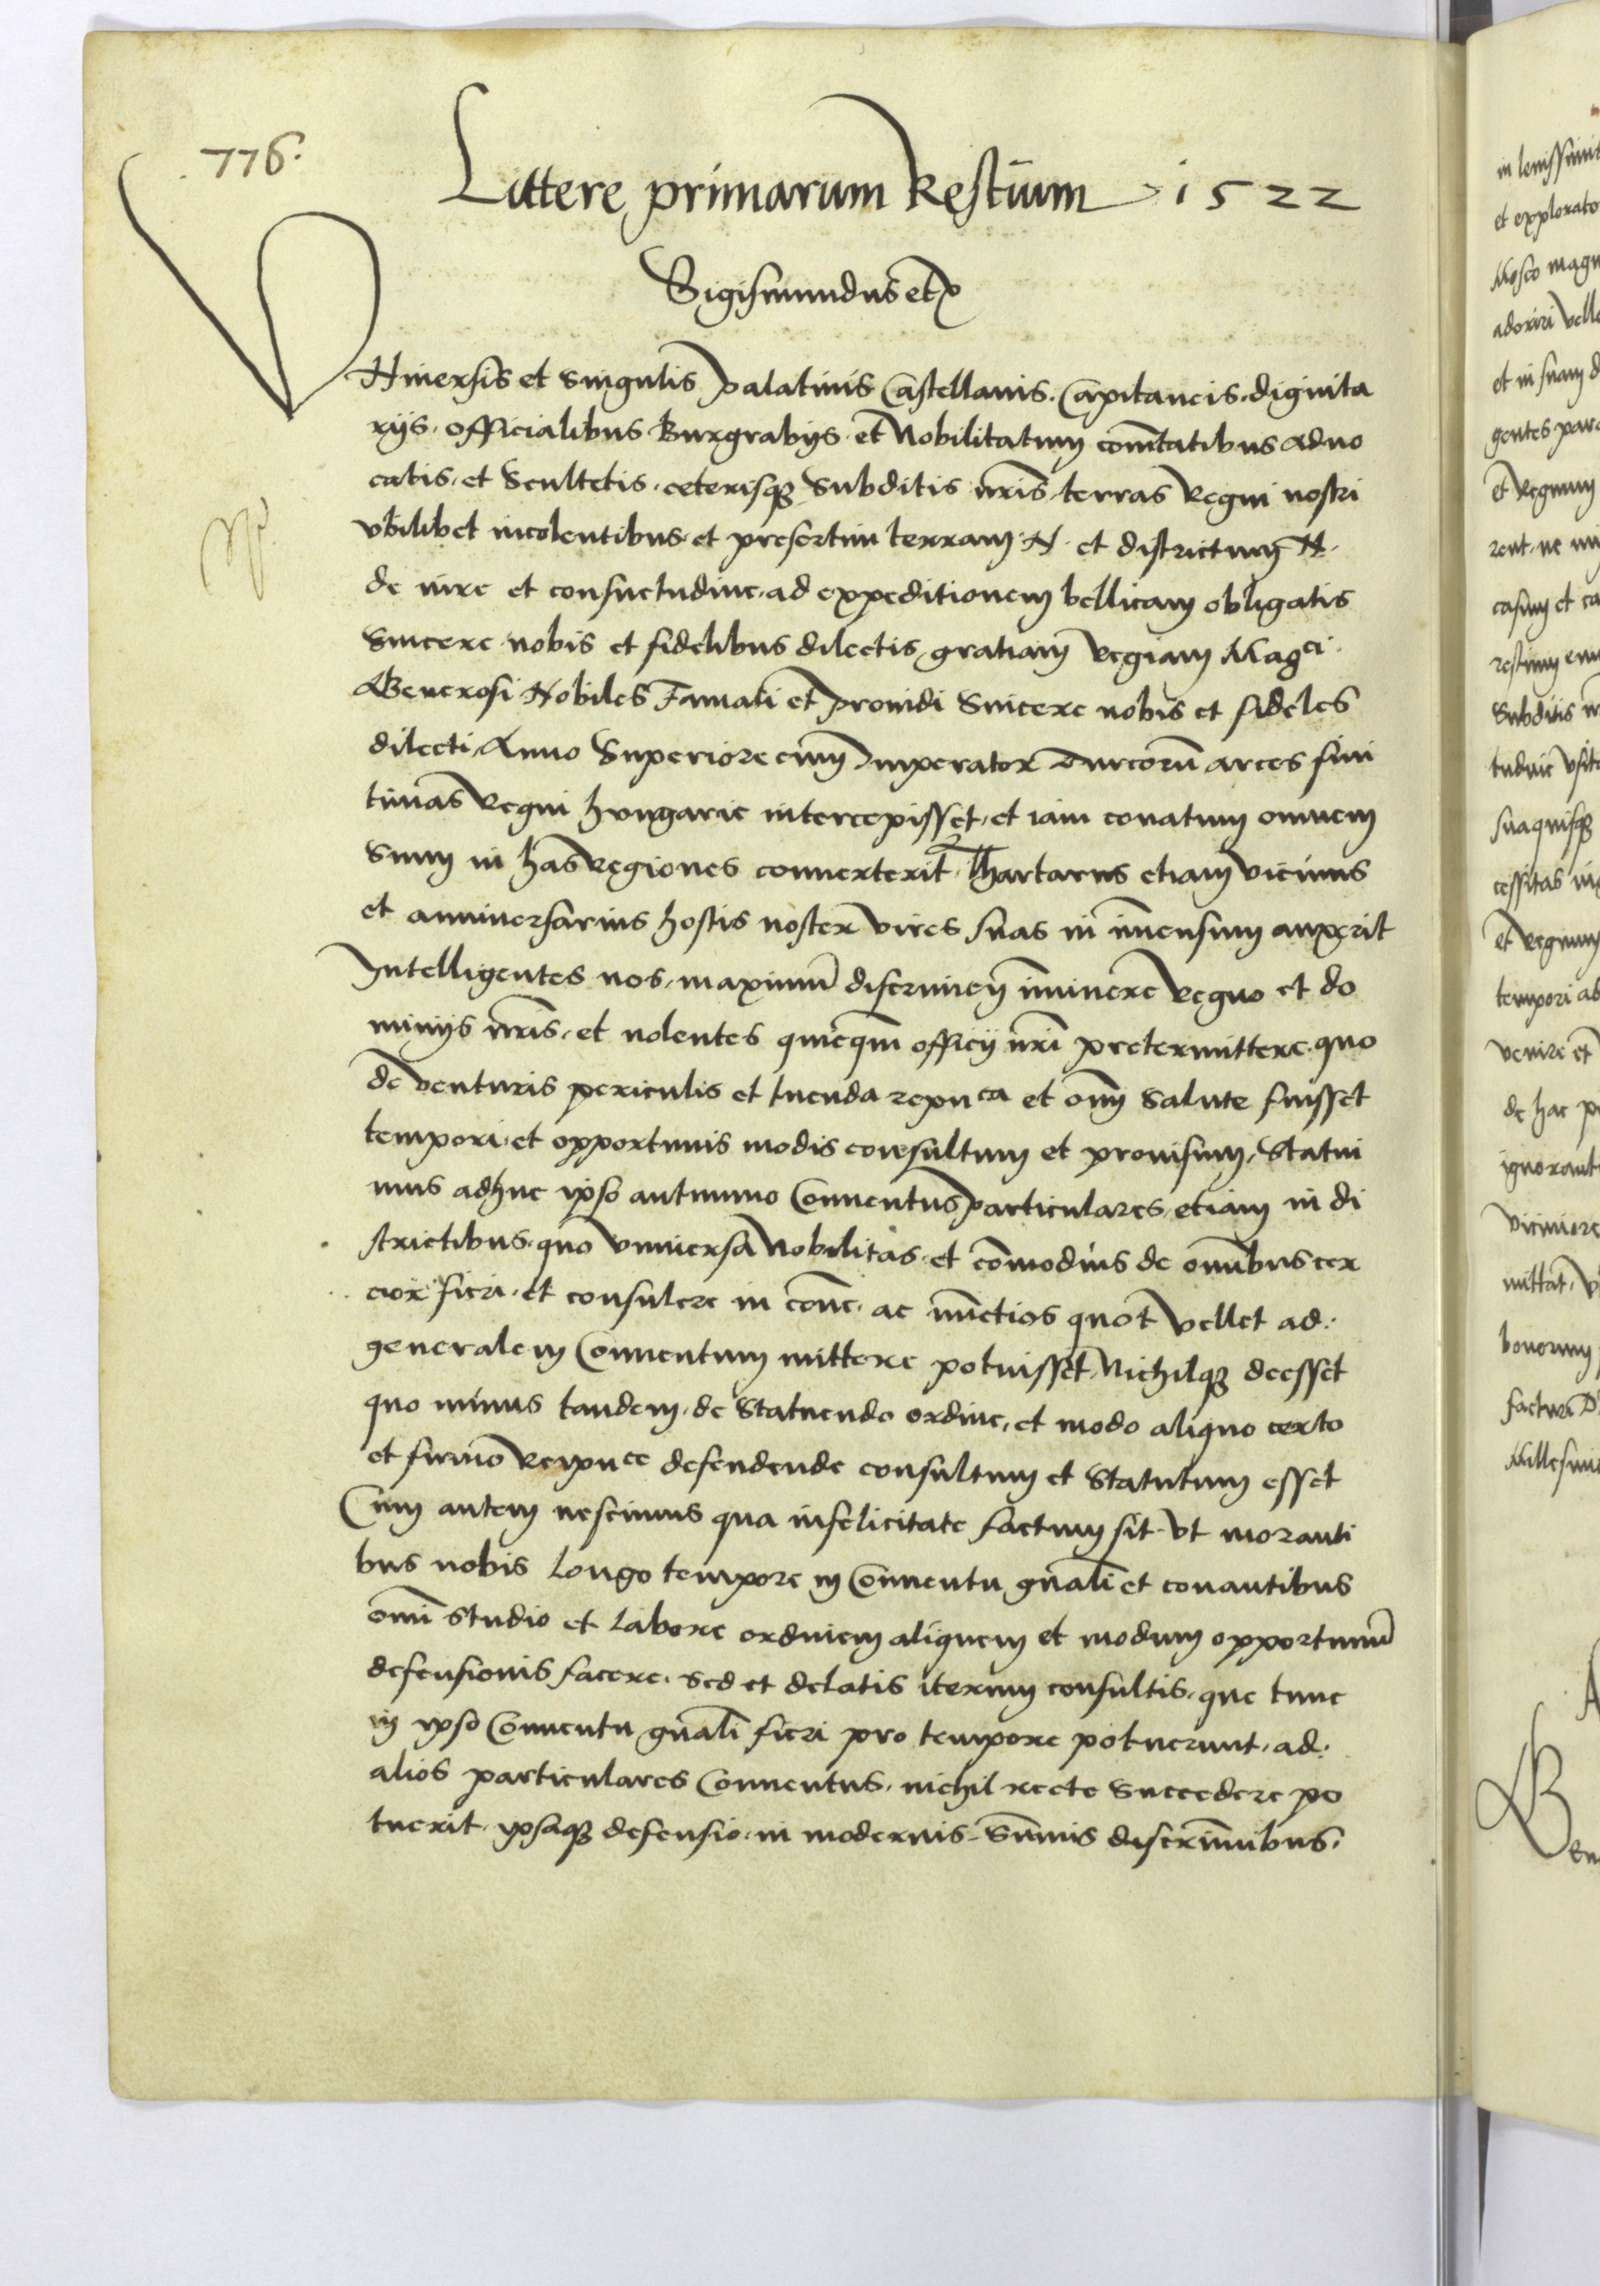 776.
Littere primarum Restium 1522
Sigismundus etc
VNiuersis et singulis Palatinis Castellanis. Capitaneis. dignita
rijs. officialibus Burgrabijs. et Nobilitatum com̄tatibus aduo
catis. et Scultetis. ceterisq3 Subditis nr̄is. terras regni nostri
vbilibet incolentibus. et presertim terram. N. et districtum N.
de iure et consuetudine. ad expeditionem bellicam obligatis
Sincere nobis et fidelibus dilectis, gratiam regiam Magci.
Generosi Nobiles Famati et Prouidi Sincere nobis et fideles
dilecti, Anno Superiore cum Imperator Turcorū arces fini
timas regni hungarie intercepisset, et iam conatum omnem
suum in has regiones conuerterit. Thartarus etiam vicinus
et anniuersarius hostis noster vires suas in im̄ensum auxerit
Intelligentes nos, maximū discrimen im̄inere regno et do
minijs nr̄is, et nolentes quicq̄m officij nr̄i pretermittere. quo
de venturis periculis et tuenda repuca et om̄j salute fuisset
tempori. et opportunis modis consultum et prouisum, Statui
mus adhuc ipso autumno Conuentus particulares, etiam in di
strictibus. quo vniuersa Nobilitas. et com̄odius de om̄ibus cer
cior fieri. et consulere in com̄e. ac nūctios quot vellet ad.
generalem Conuentum mittere potuisset, Nichilq3 deesset
quo minus tandem. de statuendo ordine, et modo aliquo certo
et firmo reipuce defendende consultum et statutum esset
Cum autem nescimus qua infelicitate factum sit. vt moranti
bus nobis longo tempore in Conuentu gn̄ali et conantibus
om̄i studio et labore ordinem aliquem et modum opportunū
defensionis facere. sed et delatis iterum consultis. que tunc
in ipso Conuentu gn̄ali fieri pro tempore potuerunt. ad.
alios particulares Conuentus. nichil recte succedere po
tuerit. ipsaq3 defensio. in modernis. sum̄is discrim̄inibus.